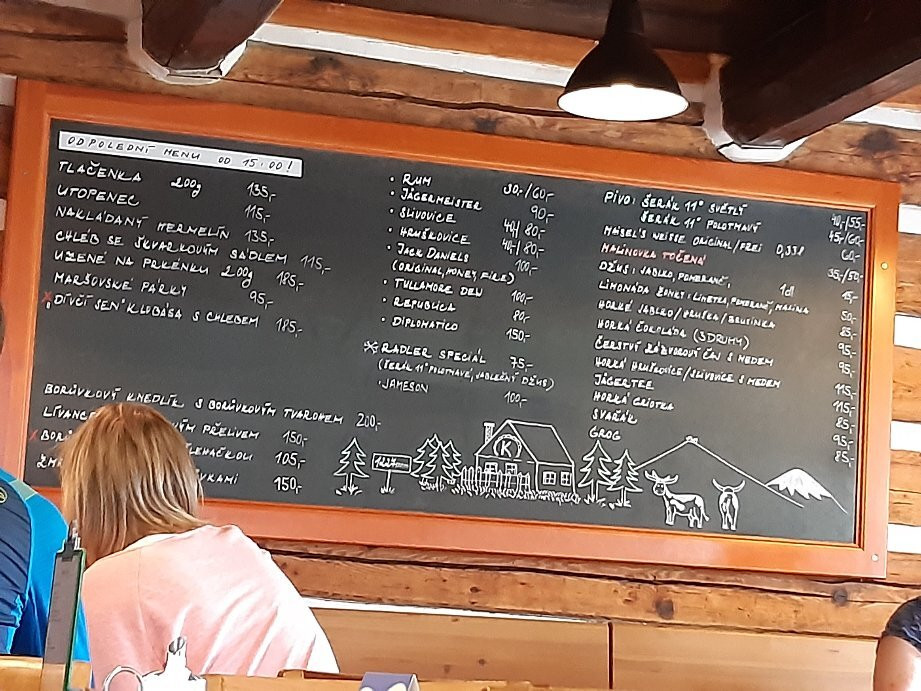 ODPOLEDNÍ MENU OD 15:00!
TLAČENKA 200g 135,-
UTOPENEC 115,-
NAKLÁDANÝ HERMELÍN 135,-
CHLÉB SE ŠKVARKOVÝM SÁDLEM 115,-
UZENÉ NA PRKÉNKU 200g 185,-
MARŠOVSKÉ PÁRKY 95,-
DÍVČÍ SEN KLOBÁSA S CHLEBEM 185,-
BORŮVKOVÝ KNEDLÍK S BORŮVKOVÝM TVAROHEM 200,-
LÍVANCE PŘELIVEM 150,-
105,-
150,-
• RUM 30,-/60,-
• JÄGERMEISTER 90,-
• SLIVOVICE 40/80,-
• HRUŠKOVICE 40/80,-
• JACK DANIELS 100,-
(ORIGINAL, HONEY, FIRE)
• TULLAMORE DEW 100,-
• REPUBLICA 80,-
• DIPLOMATICO 150,-
RADLER SPECIÁL 75,-
(ŠERÁK 11° POLOTMAVÉ, JABLEČNÝ DŽUS)
• JAMESON 100,-
PIVO: ŠERÁK 11° SVĚTLÝ 40,/55,-
ŠERÁK 11° POLOTMAVÝ 45,/60,-
MAISEL'S WEISSE ORIGINAL/FREI 0,33l 60,-
MALINOVKA TOČENÁ 35,/50,-
DŽUS: JABLKO, POMERANČ, 1dl 15,-
LIMONÁDA ŽANKY: LIMETKA, POMERANČ, MALINA 50,-
HORKÉ JABLKO/HRUŠKA/BRUSINKA 85,-
HORKÁ ČOKOLÁDA (3 DRUHY) 95,-
ČERSTVÝ ZÁZVOROVÝ ČAJ S MEDEM 95,-
HORKÁ HRUŠKOVICE/SLIVOVICE S MEDEM 115,-
JÄGERTEE 115,-
HORKÁ GRIOTKA 85,-
SVAŘÁK 95,-
GROG 85,-
K